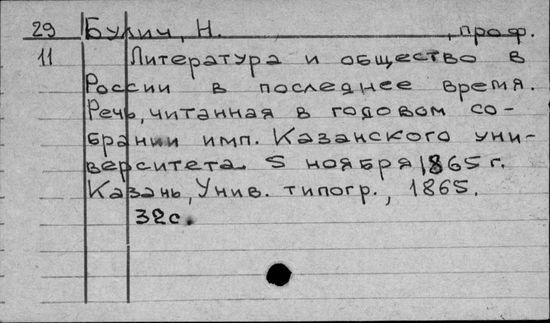 29 Булич, Н. , проф.
11 Литература и общество в
России в последнее время.
Речь, читанная в годовом со-
брании имп. Казанского уни-
верситета 5 ноября 1865 г.
Казань, Унив. типогр., 1865.
32 с.